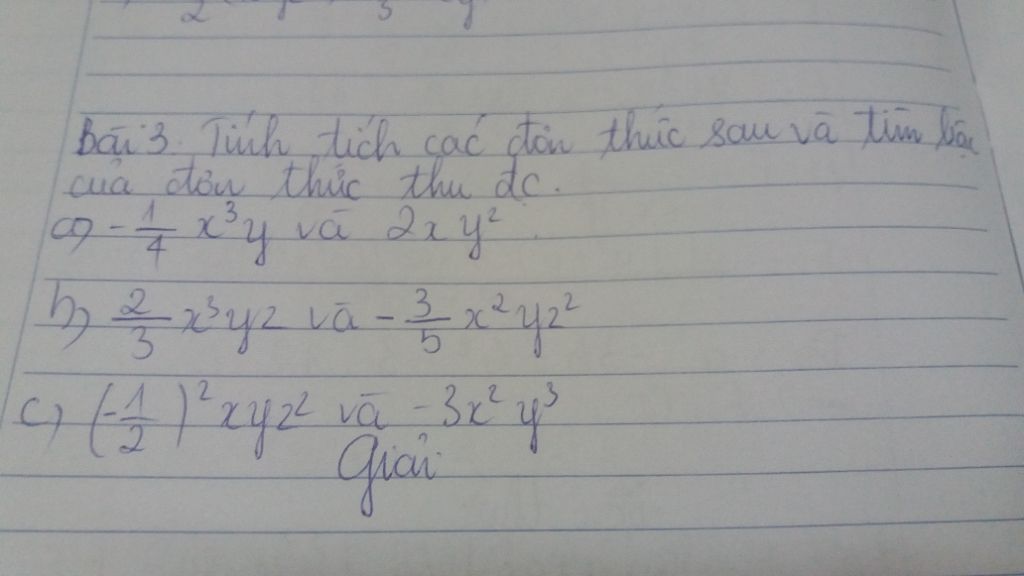 Bài 3. Tính tích các đơn thức sau và tìm bậc
của đơn thức thu đc.
a) -1/4 x³y và 2xy².
b) 2/3 x³yz và -3/5 x²yz²
c) (-1/2)² xyz² và -3x²y³
Giải